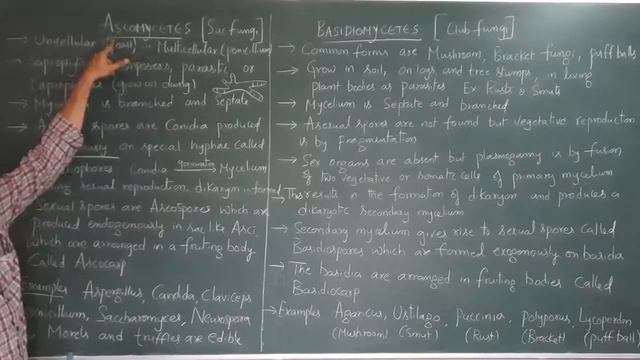 ASCOMYCETES [Sac fungi]
→ Unicellular (yeast) or Multicellular (penicillium)
parasitic or
(grow on dung)
→ is branched and Septate
→ spores are Conidia produced
on special hyphae called
Conidia germinating Mycelium
sexual reproduction, dikaryon is formed
Sexual spores are Ascospores which are
produced endogenously in sac like Asci
which are arranged in a fruiting body
Called Ascocarp
Examples Aspergillus, Candida, Claviceps
Saccharomyces, Neurospora
Morels and truffles are edible
BASIDIOMYCETES [Club fungi]
→ Common forms are Mushroom, Bracket fungi, puff balls
→ Grow in soil, on logs and tree stumps, in living
plant bodies as parasites Ex Rusts & Smuts
→ Mycelium is Septate and branched
→ Asexual spores are not found but vegetative reproduction
is by Fragmentation
→ Sex organs are absent but plasmogamy is by fusion
of Two vegetative or somatic cells of primary mycelium
This results in the formation of dikaryon and produces a
dikaryotic secondary mycelium
→ Secondary mycelium gives rise to sexual spores called
Basidiospores which are formed exogenously on basidia
→ The basidia are arranged in fruiting bodies Called
Basidiocarp
→ Examples Agaricus, Ustilago, puccinia, polyporus, Lycoperdon
(Mushroom) (Smut) (Rust) (Bracket) (puff ball)